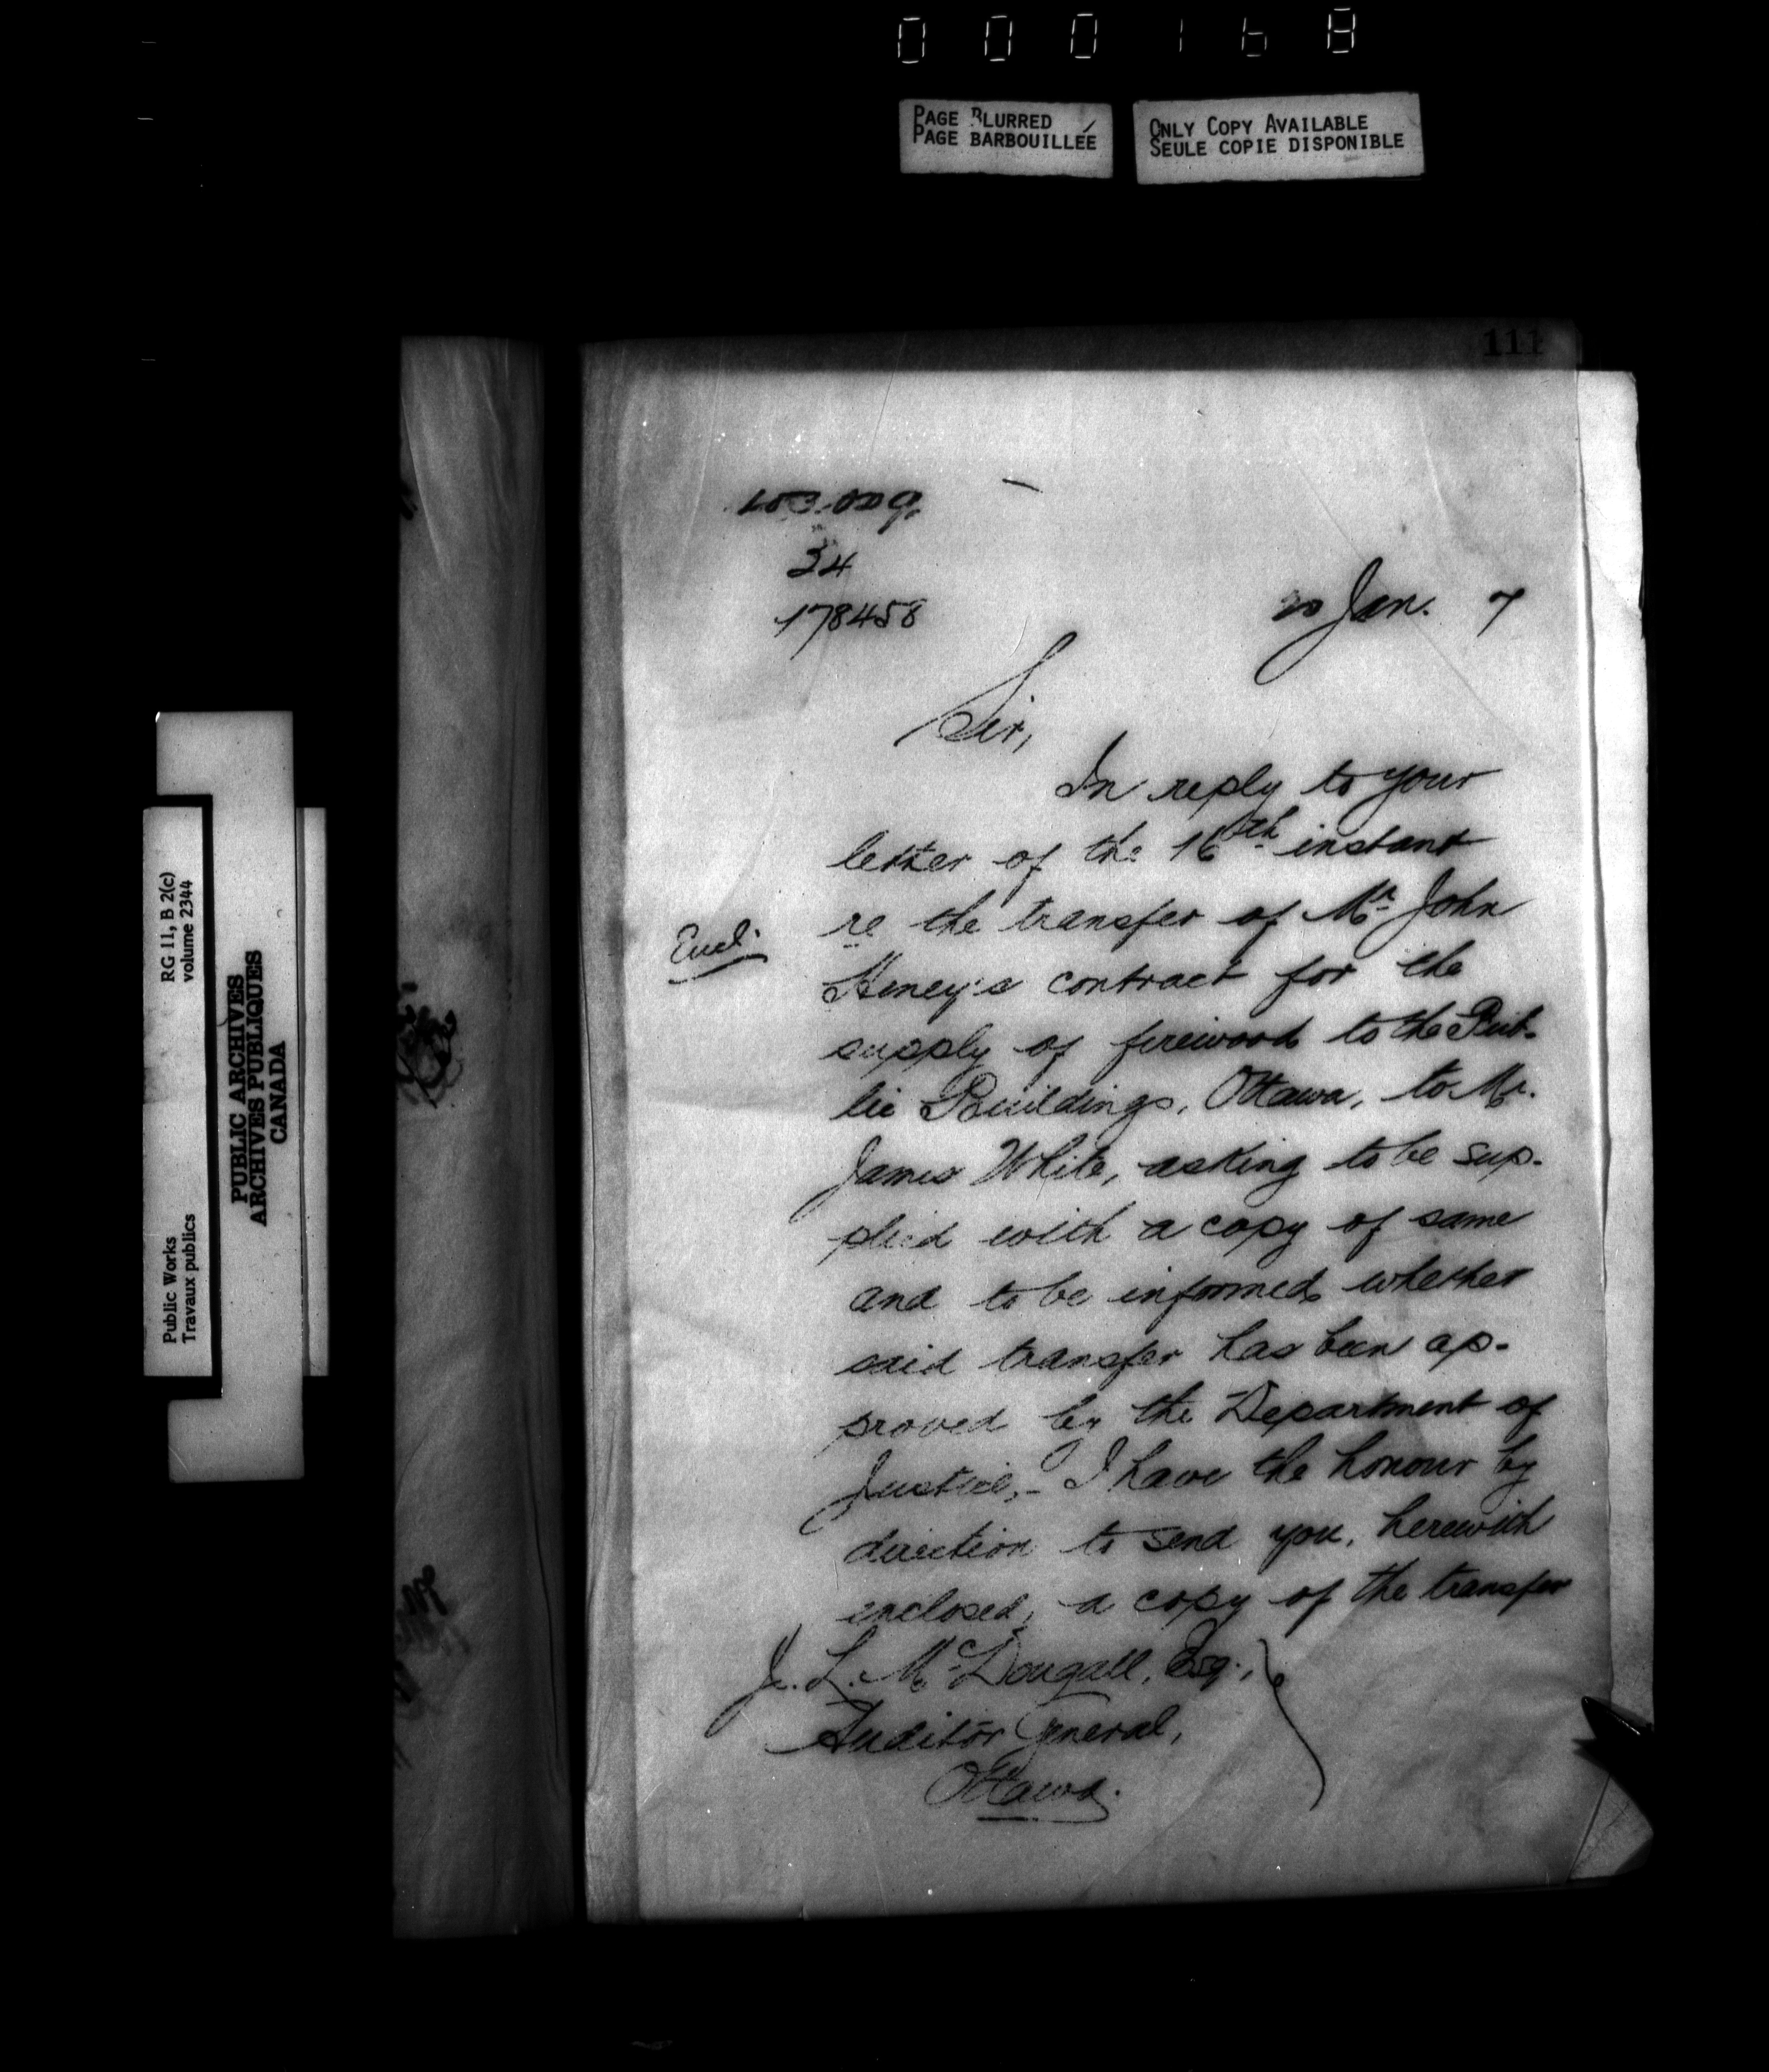 000168
PAGE BLURRED
PAGE BARBOUILLÉE
ONLY COPY AVAILABLE
SEULE COPIE DISPONIBLE
111
34
178458
20 Jan. 7
Sir,
In reply to your
letter of the 16th instant
re the transfer of Mr. John
Encl.
Heney's contract for the
supply of firewood to the Pub-
lic Buildings, Ottawa, to Mr.
James White, asking to be sup-
plied with a copy of same
and to be informed whether
said transfer has been ap-
proved by the Department of
Justice, - I have the honour by
direction to send you, herewith
enclosed, a copy of the transfer
J. L. McDougall, Esq.,
Auditor General,
Ottawa.
Public Works
Travaux publics
RG 11, B 2(c)
volume 2344
PUBLIC ARCHIVES
ARCHIVES PUBLIQUES
CANADA